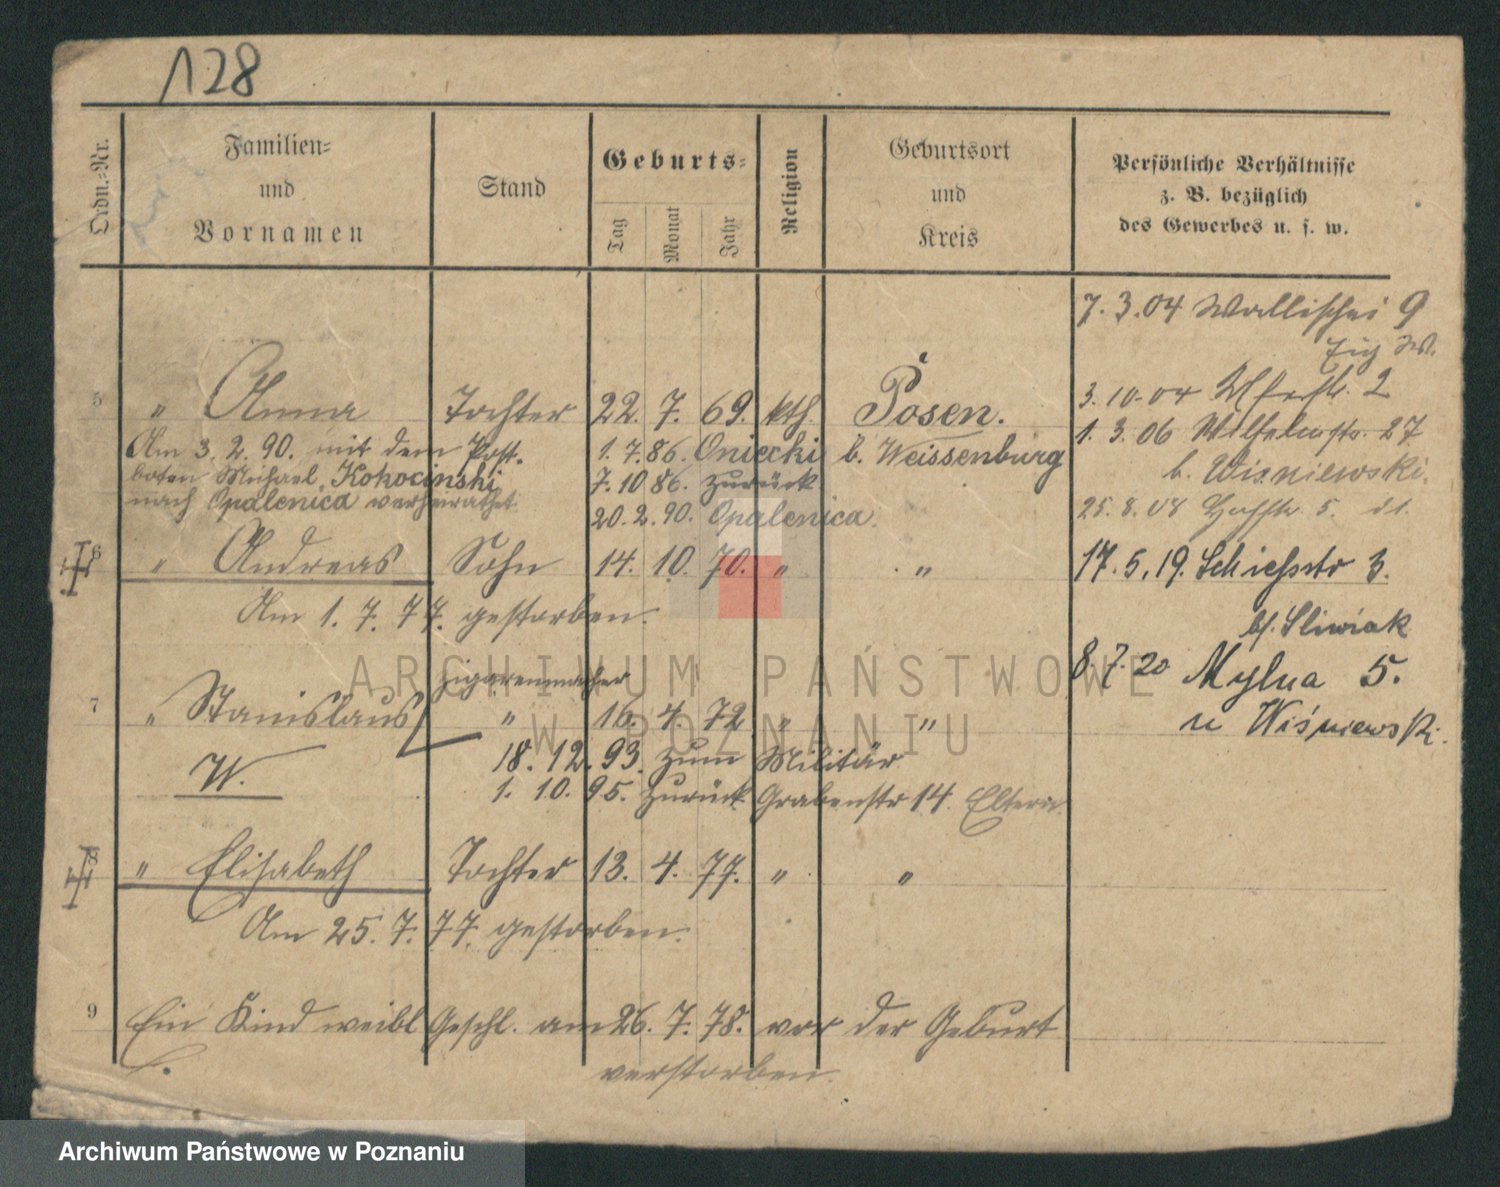 128
Ordn.-Nr.
Familien-
und
Vornamen
Stand
Geburts-
Tag
Monat
Jahr
Religion
Geburtsort
und
Kreis
Persönliche Verhältnisse
z. B. bezüglich
des Gewerbes u. s. w.
7. 3. 04 Wallischei 9
3. 10. 04 2
1. 3. 06 Wilhelmstr. 27
b. Wisniewski.
25. 8. 08 5.
17. 5. 19. Schiessstr 3.
bf. Sliwiak
8. 7. 20 Mylna 5.
u Wiśniewski.
5 " Anna Tochter 22. 7. 69. kth. Posen.
Am 3. 2. 90. mit dem Post-
boten Michael Kokocinski
nach Opalenica verheirathet
1. 7. 86. Oniecki b. Weissenburg
7. 10. 86. zurück
20. 2. 90. Opalenica.
6 " Andreas Sohn 14. 10. 70. " "
Am 1. 7. 77. gestorben.
Zigarrenmacher
7 " Stanislaus " 16. 4. 72 " "
W. 18. 12. 93. zum Militär
1. 10. 95. zurück Grabenstr 14. Eltern
8 " Elisabeth Tochter 13. 4. 77. " "
Am 25. 7. 77. gestorben.
9 Ein Kind weibl Geschl. am 26. 7. 78. vor der Geburt
verstorben.
ARCHIWUM PAŃSTWOWE
W POZNANIU
Archiwum Państwowe w Poznaniu